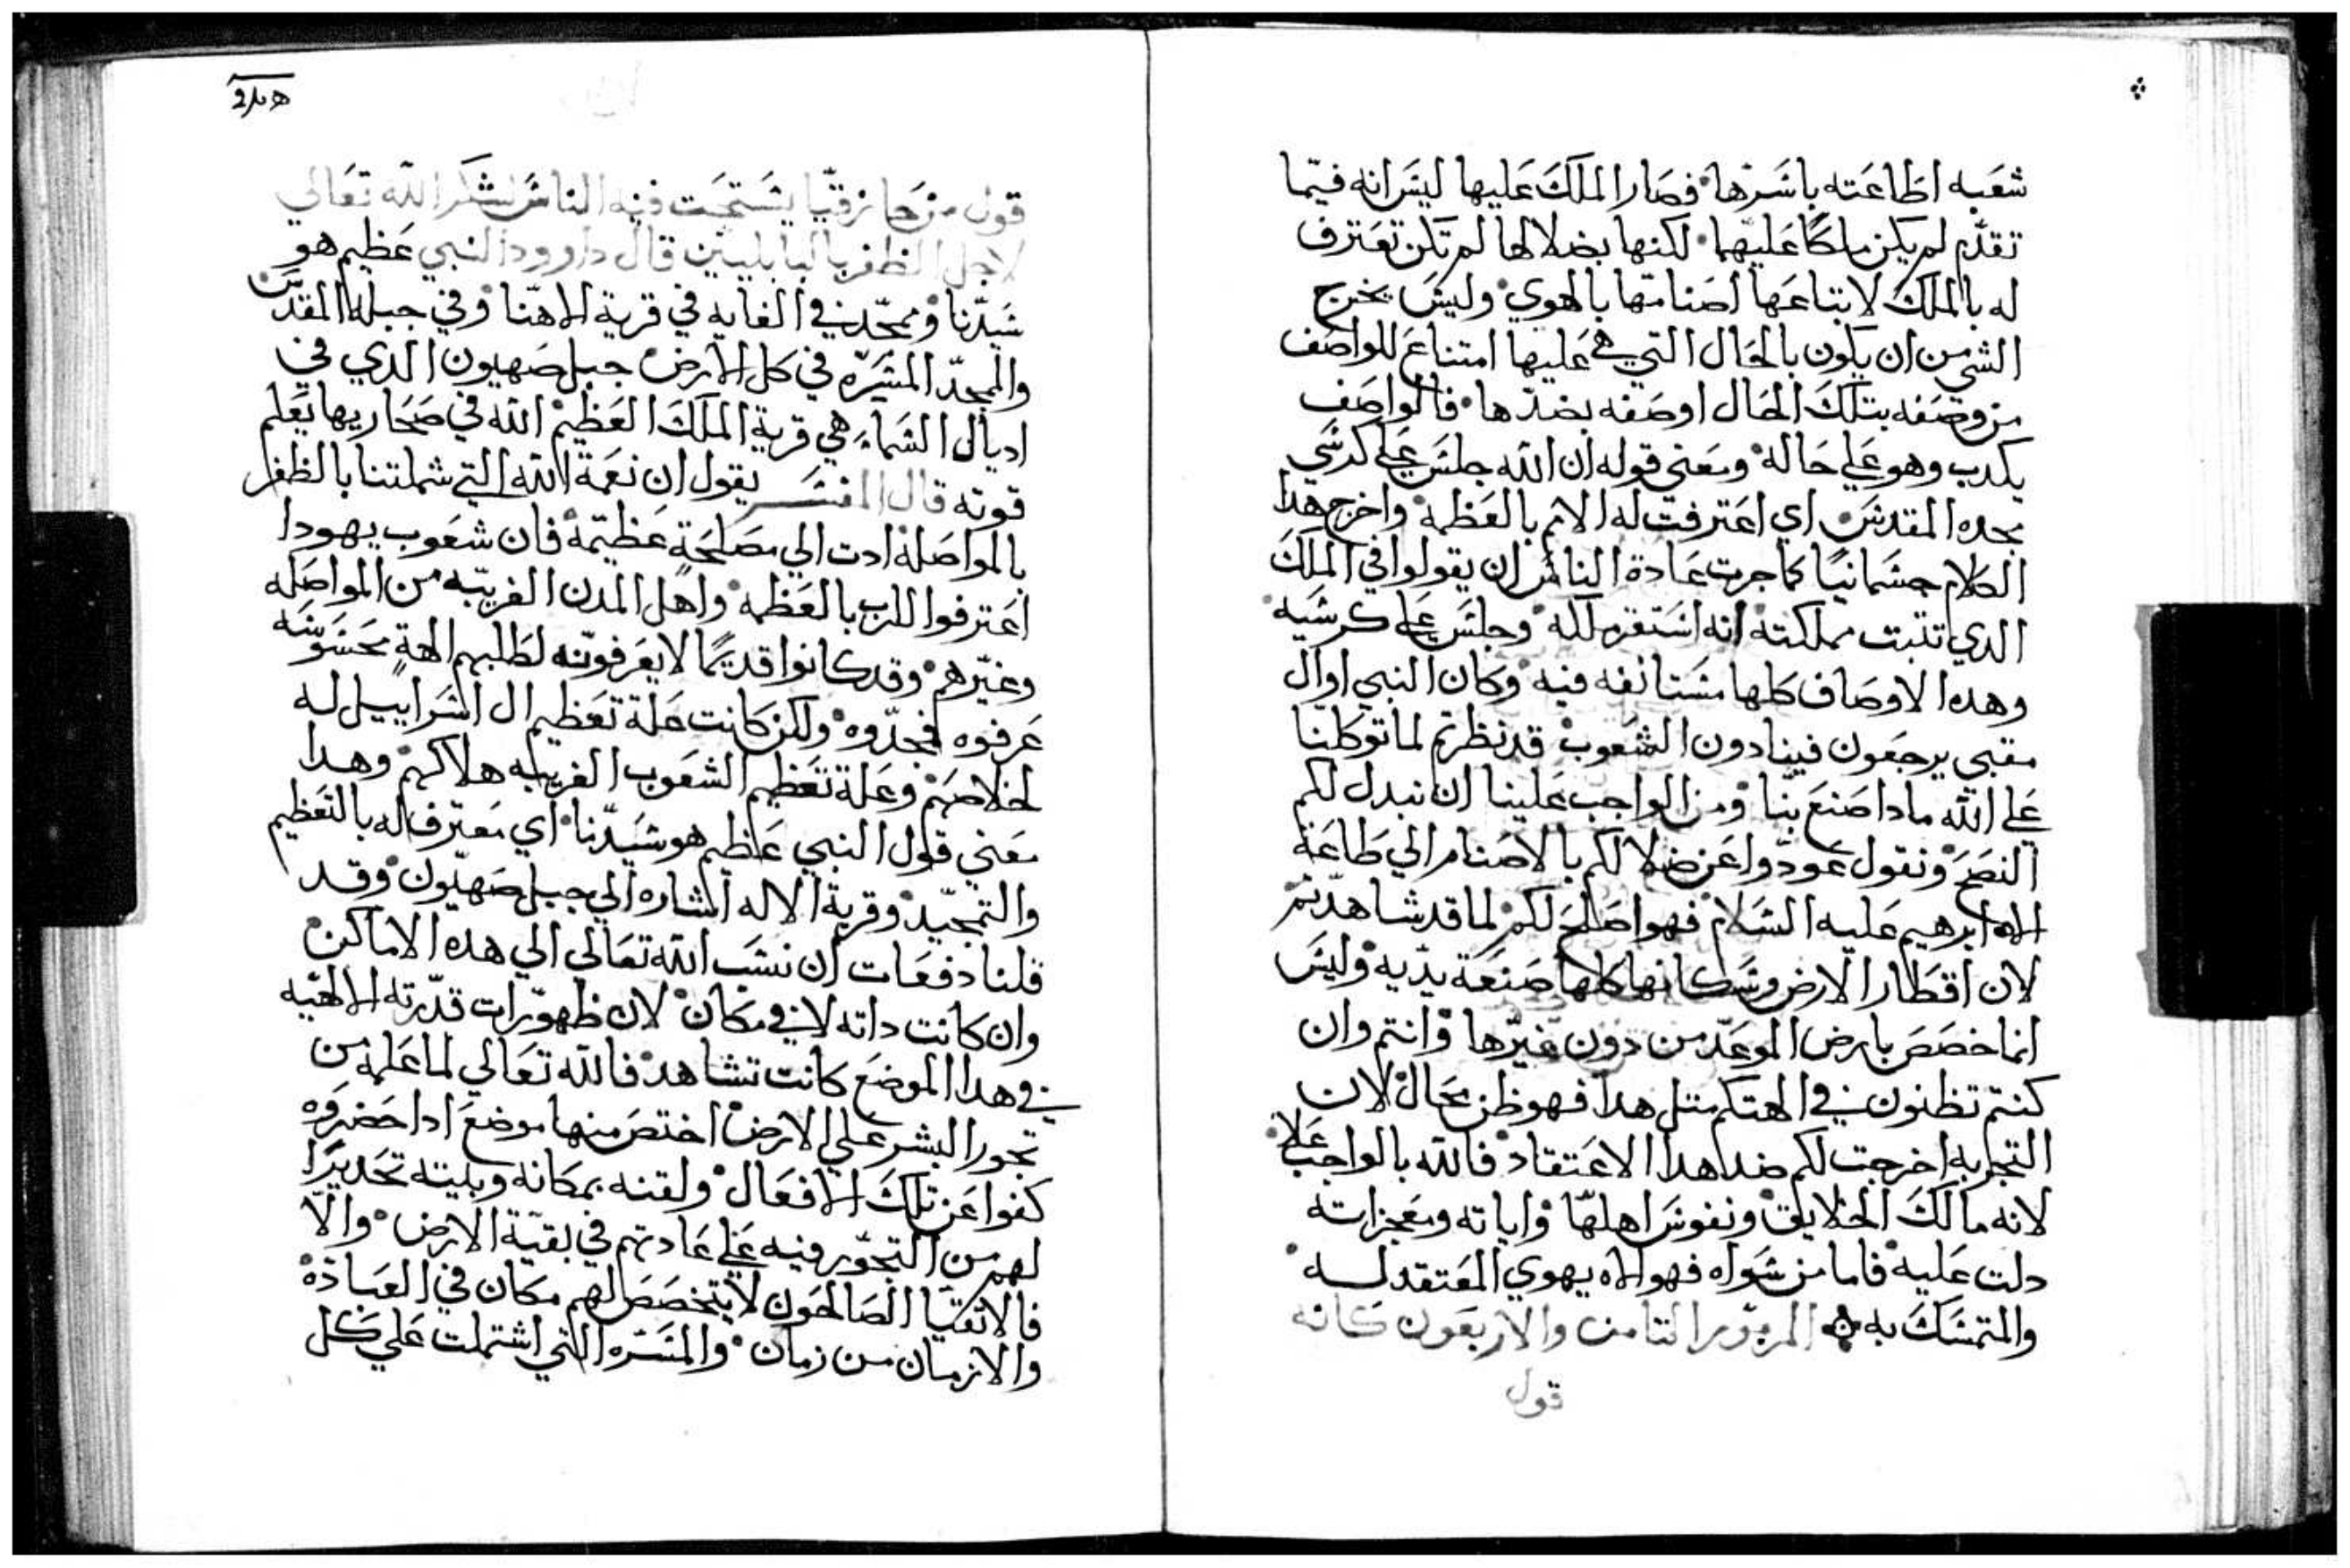 شعبه اطاعته باسرها فصار الملك عليها ليس انه فيما
تقدم لم يكن ملكًا عليهما لكنها بضلالها لم تكن تعترف
له بالملك لاتباعها اصنامها بالهوي وليس يخرج
الشي من ان يكون بالحال التي هي عليها امتناع الواصف
من وصفه بتلك الحال او صفه بضدها فالواصف
يكدب وهو علي حاله ومعني قوله ان الله جلس علي كرسي
مجده المقدس اي اعترفت له الامم بالعظمة واخرج هدا
الكلام جسمانيًا كما جرت عادة الناس ان يقولوا في الملك
الدي تثبت مملكته انه استقر ملكه وجلس علي كرسيه
وهده الاوصاف كلها مستانفه فيه وكان النبي اوال
مقبي يرجعون فينادون الشعوب قد نظرتم لما توكلنا
علي الله مادا صنع بنا ومن الواجب علينا ان نبدل لكم
النصح ونقول عودوا عن ضلالكم بالاصنام الي طاعة
الاه ابرهيم عليه السلام فهو اصلح لكم لما قد شاهدتم
لان اقطار الارض وسكانها كلها صنعة يديه وليس
انما خصص بارض الموعد من دون غيرها وانتم وان
كنتم تظنون في الهتكم متل هدا فهو ظن محال لان
التجربه اخرجت لكم ضد هدا الاعتقاد فالله بالواجب علا
لانه مالك الخلايق ونفوس اهلها واياته ومعجزاته
دلت عليه فاما من سواه فهو الاه يهوي المعتقد له
والمتمسك به المزمور التامن والاربعون كانه
قول
قول من حازقيا يستحث فيه الناس لشكر الله تعالي
لاجل الظفر بالبابليين قال داوود النبي عظيم هو
سيدنا وممجد في الغايه في قرية الاهنا وفي جبله المقدس
والممجد المسره في كل الارض جبل صهيون الدي في
اديال الشماء هي قرية الملك العظيم الله في صحاريها يعلم
قوته قال المفسر يقول ان نعمة الله التي شملتنا بالظفر
بالمواصلة ادت الي مصلحة عظيمة فان شعوب يهودا
اعترفوا للرب بالعظمه واهل المدن الغريبه من المواصله
وغيرهم وقد كانوا قديمًا لا يعرفونه لطلبهم الهة محسوسه
عرفوه فمجدوه ولكن كانت علة تعظيم ال اسراييل له
لخلاصهم وعلة تعظيم الشعوب الغريبه هلاكهم وهدا
معني قول النبي عظيم هو سيدنا اي معترف له بالتعظيم
والتمجيد وقرية الاله اشاره الي جبل صهيون وقد
قلنا دفعات ان نسب الله تعالي الي هده الاماكن
وان كانت داته لا في مكان لان ظهورات قدرته الالهيه
في هدا الموضع كانت تشاهد فالله تعالي لما علمه من
تجور البشر علي الارض اختص منها موضع ادا حضروه
كفوا عن تلك الافعال ولقنه بمكانه وبليته تحديرًا
لهم من التجور فيه علي عادتهم في بقية الارض والا
فالاتقيا الصالحون لا يتخصص لهم مكان في العبادة
والازمان من زمان والمسره التي اشتملت علي كل